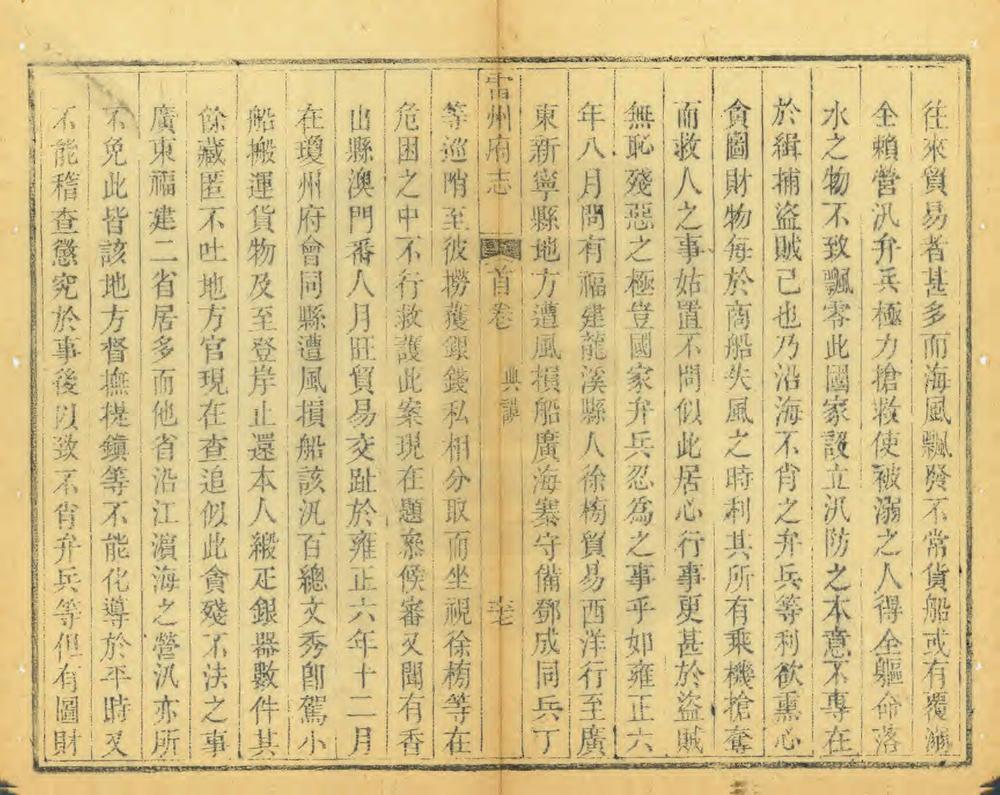 往來貿易者甚多而海風飄發不常貨船或有覆溺
全賴營汛弁兵極力搶救使被溺之人得全軀命落
水之物不致飄零此國家設立汛防之本意不專在
於緝捕盜賊已也乃沿海不肖之弁兵等利欲熏心
貪圖財物每於商船失風之時利其所有乘機搶奪
而救人之事姑置不問似此居心行事更甚於盜賊
無恥殘惡之極豈國家弁兵忍為之事乎如雍正六
年八月間有福建龍溪縣人徐榜貿易西洋行至廣
東新寧縣地方遭風損船廣海寨守備鄧成同兵丁
雷州府志 首卷 典謨
等巡哨至彼撈獲銀錢私相分取而坐視徐榜等在
危困之中不行救護此案現在題叅候審又聞有香
山縣澳門番人月旺貿易交趾於雍正六年十二月
在瓊州府會同縣遭風損船該汛百總文秀卽駕小
船搬運貨物及至登岸止還本人緞疋銀器數件其
餘藏匿不吐地方官現在查追似此貪殘不法之事
廣東福建二省居多而他省沿江濵海之營汛亦所
不免此皆該地方督撫提鎮等不能化導於平時又
不能稽查懲究於事後以致不肖弁兵等但有圖財